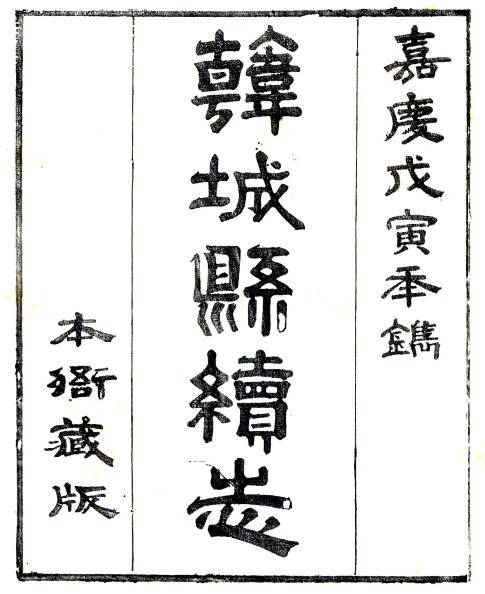 嘉慶戊寅年鐫
韓城縣續志
本衙藏版